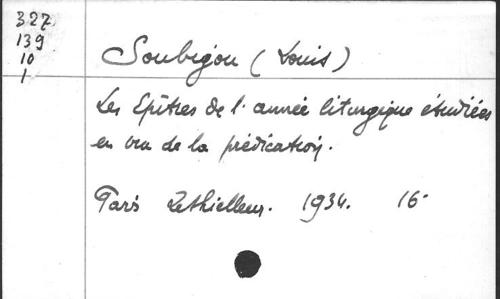 327
139
10
1
Soubigou (Louis)
Les Epîtres de l'année liturgique étudiées
en vue de la prédication.
Paris Lethielleux. 1934. 16°